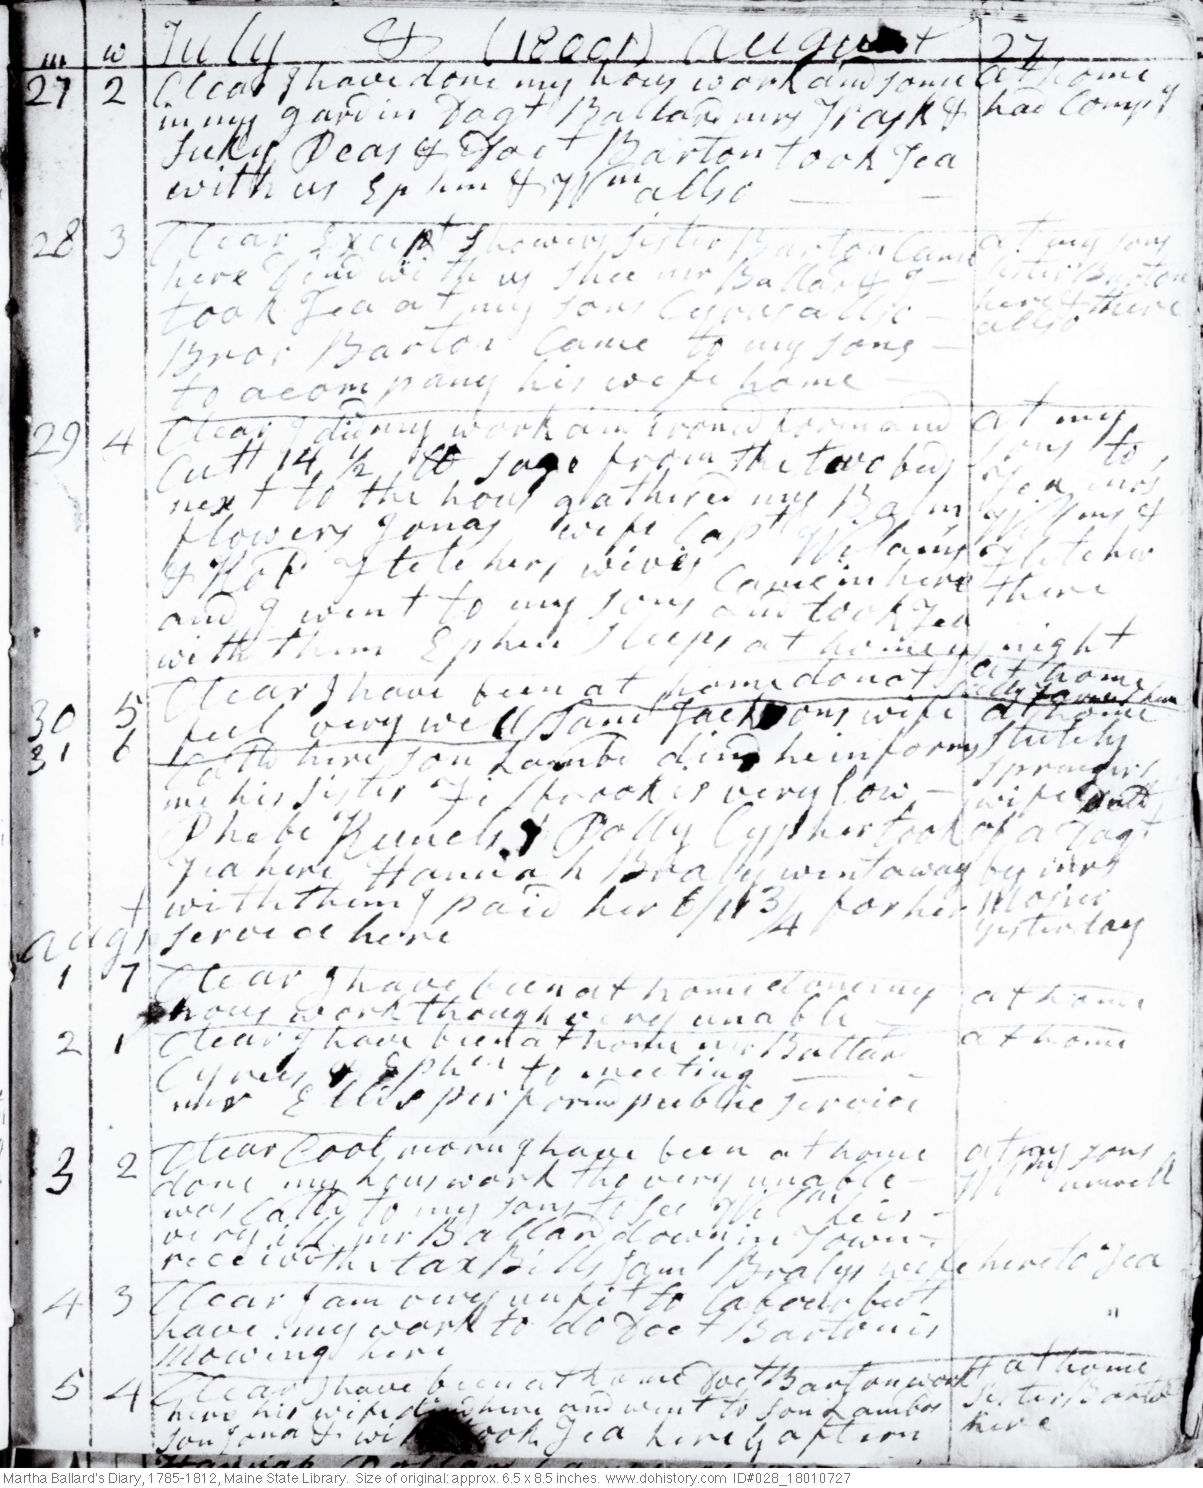 m w July & (1801) August 27
27 2 Clear I have done my hous work and some at home
in my gardin Dagt Ballard mrs Trask & had Compy
Suky Peas & Doct Barton took Tea
with us Ephm & Wm allso
28 3 Clear Except showers Sister Barton Came at my sons
here Dind with us Shee mr Ballard & I Sister Barton
took Tea at my sons Cyrus allso here & there
Bror Barton Came to my sons allso
to acompany his wife home
29 4 Clear I did my work and at my
Cutt 14 1/2 lb Sage from the two beds sons to
next to the hous gathered my Balm Tea mrs
flowers Jonas wife Capt Wilams Willms &
& Rob Fletchers wives Came in here Fletcher
and I went to my sons and took Tea there
with them Ephm Sleeps at home night
30 5 Clear I have been at home do not at home
feel very well Saml Jacksons wife at home
31 6 here son Lambd dind he informs Stutely
me his Sister Filbrook is very low Springers
Phebe & Polly Cypher took wife Delld of a Dagt
Tea here Hannah Braly went away by mrs
with them I paid her 6/11 3/4 for her Mosier
service here yesterday
Augt
1 7 Clear I have been at home done my at home
hous work though very unable
2 1 Clear I have been at home mr Ballard at home
Cyrus & Ephm to meeting
mr Ellis performd public service
3 2 Clear Cool morn I have been at home at my sons
done my hous work tho very unable Wm unwell
was Calld to my sons to see Wil he is
very ill mr Ballard down in Town
receivd the tax Bills Saml Bralys wife here to Tea
4 3 Clear I am very unfit to labour but "
have my work to do Doct Barton is
mowing here
5 4 Clear I have been at home Doct Barton work at home
here his wife dind here and went to son Lambds Sister Barton
son Jona & wife took Tea here Gaptien here
Hannah Ballard
Martha Ballard's Diary, 1785-1812, Maine State Library. Size of original: approx. 6.5 x 8.5 inches. www.dohistory.com ID#028_18010727